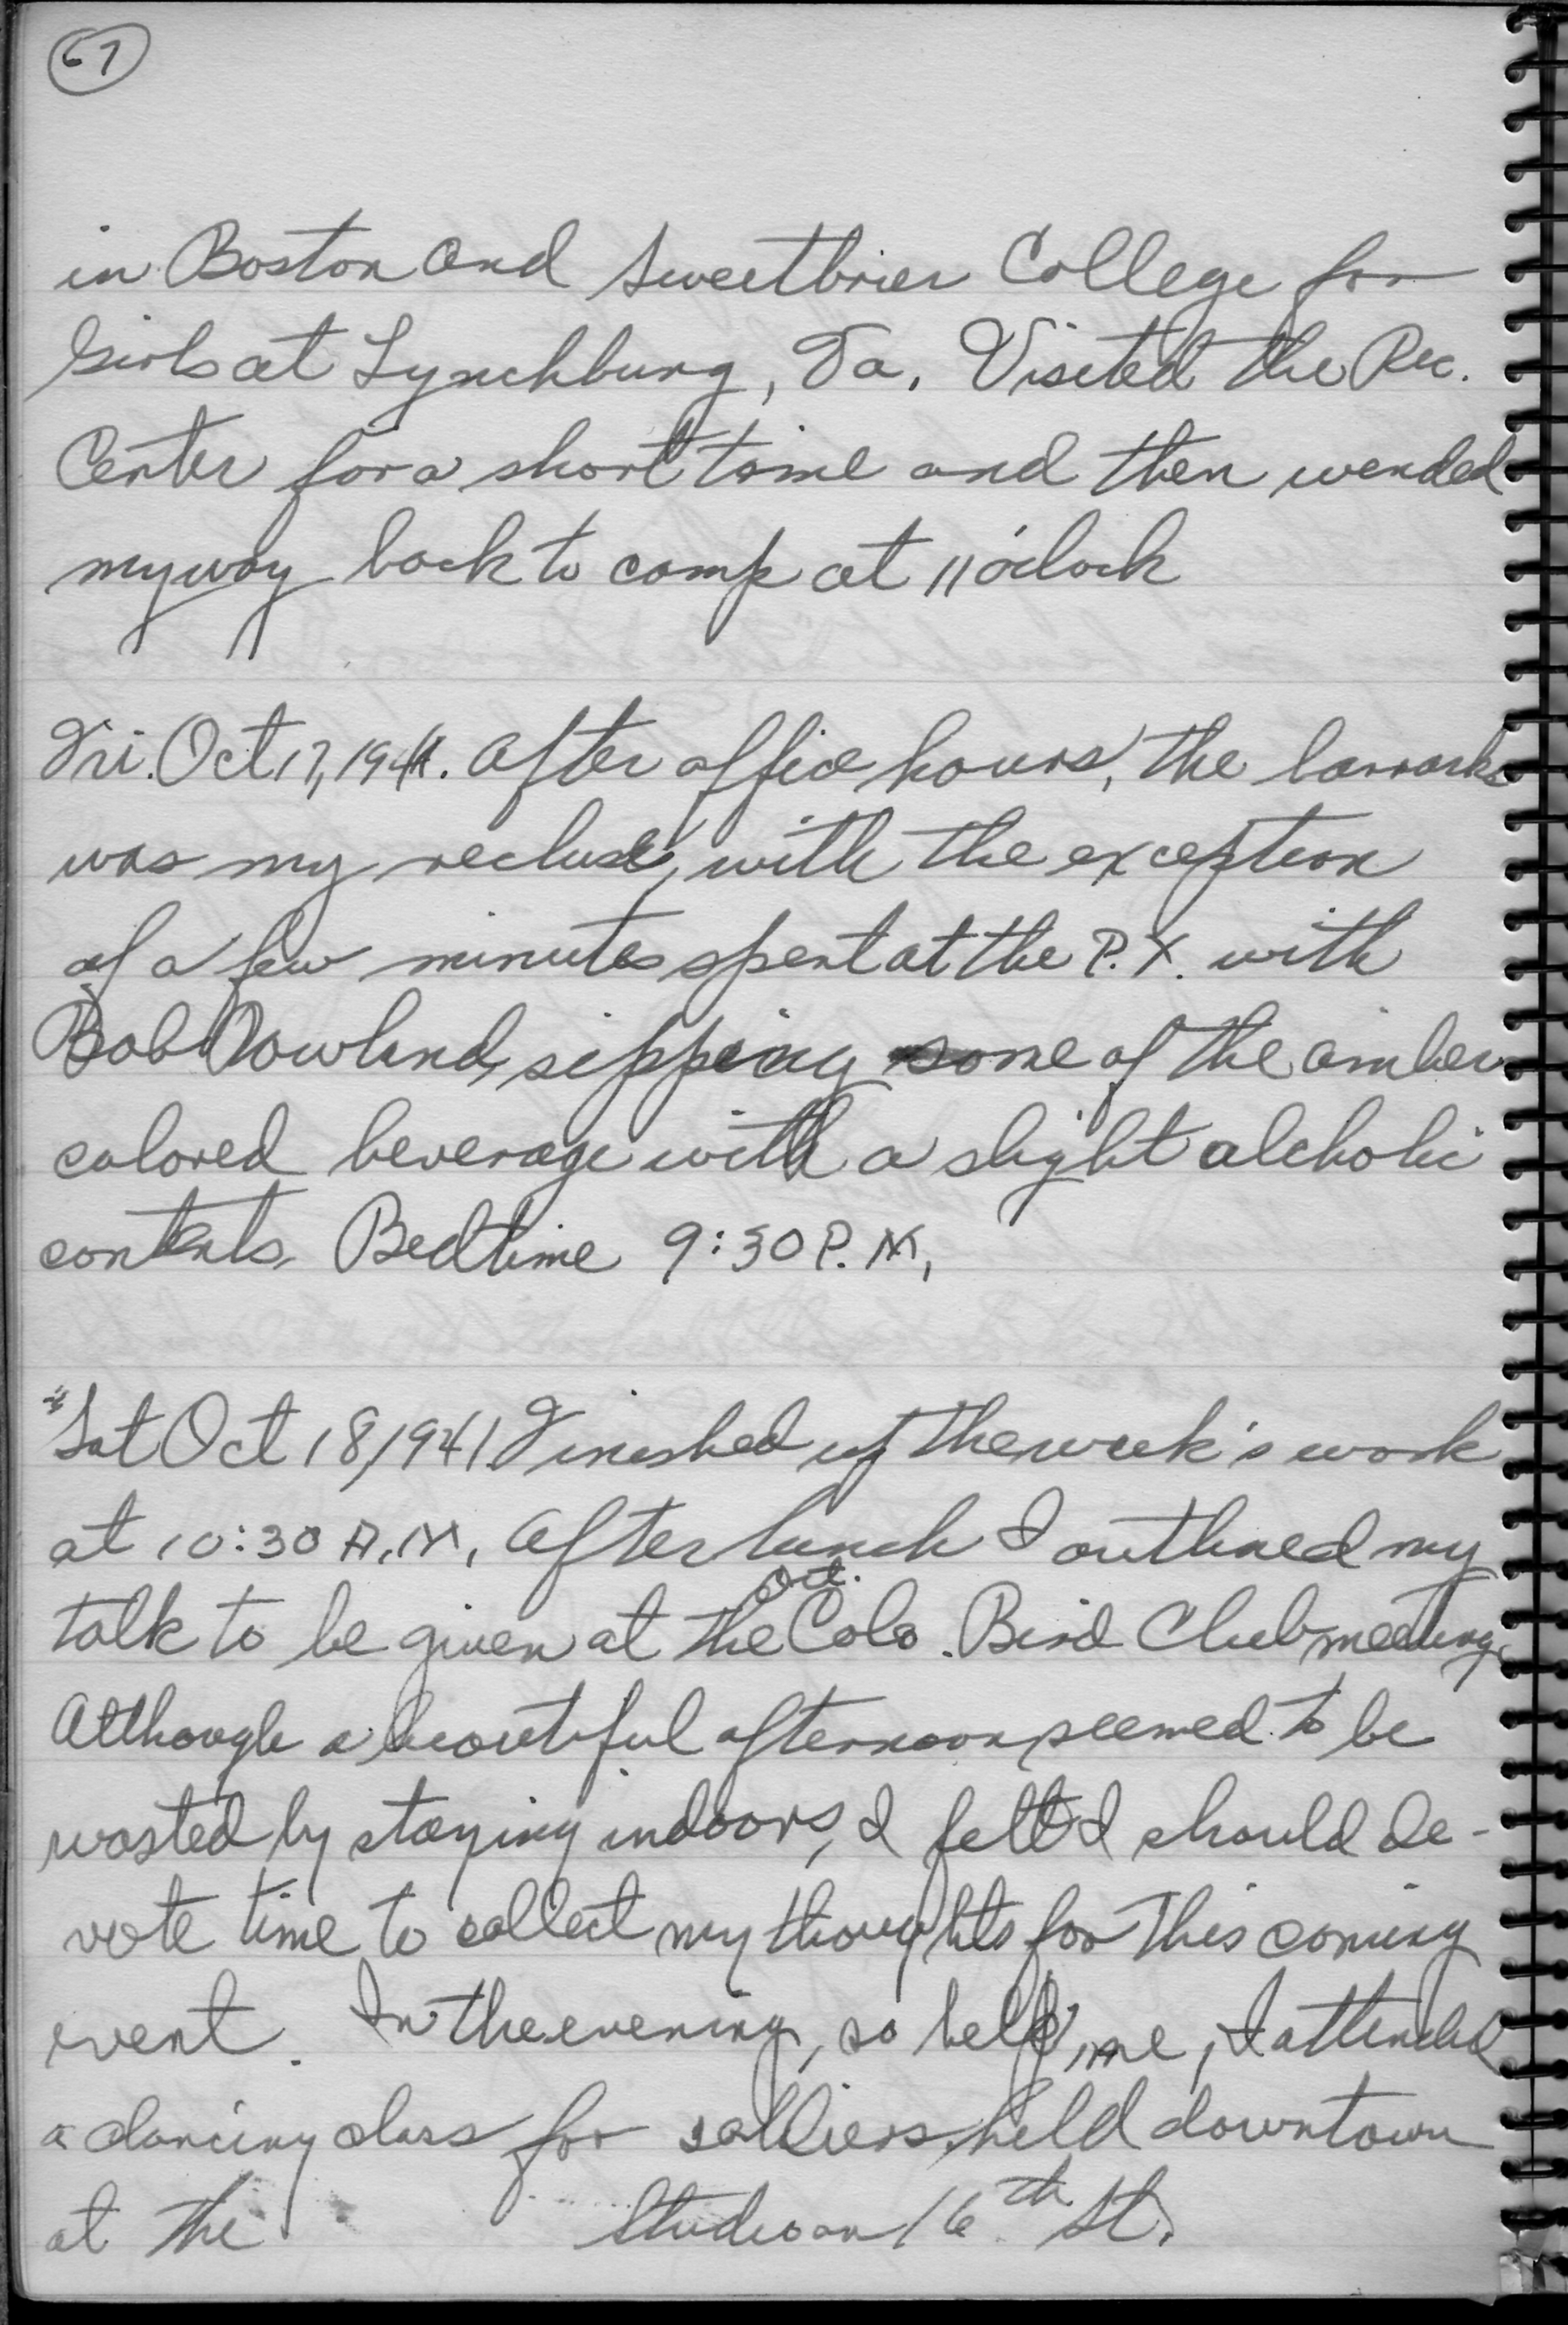 67
in Boston and Sweetbrier College for
Girls at Lynchburg, Va. Visited the Rec.
Center for a short time and then wended
my way back to camp at 11 o'clock
Fri. Oct 17, 1941. After office hours, the barracks
was my recluse, with the exception
of a few minutes spent at the P.X. with
Bob Rowland, sipping some of the amber
colored beverage with a slight alcholic
contents. Bedtime 9:30 P.M.
Sat Oct 18, 1941 Finished up the week's work
at 10:30 A.M. After lunch I outlined my
talk to be given at the Oct. Colo. Bird Club meeting.
Although a beautiful afternoon seemed to be
wasted by staying indoors, I felt I should de-
vote time to collect my thoughts for this coming
event. In the evening, so help me, I attended
a dancing class for soldiers, held downtown
at the studio on 16th St.